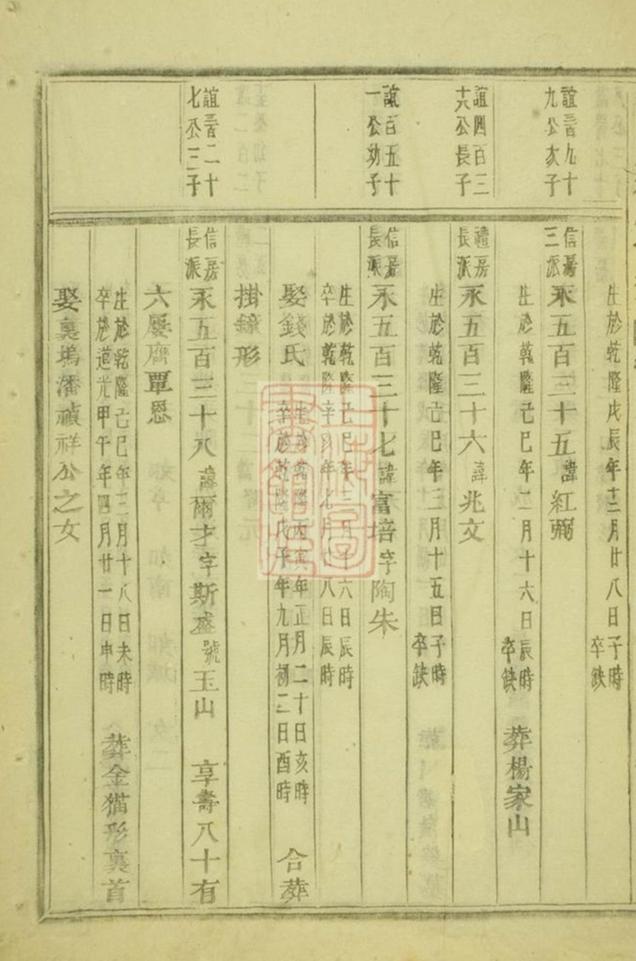 生於乾隆戊辰年十二月廿八日子時
卒缺
誼晉九十
九公次子
信房
三派
禾五百三十五諱紅
生於乾隆己巳年二月十六日辰時
卒缺
葬楊家山
誼四百三
十六公長子
禮房
長派
禾五百三十六諱兆文
生於乾隆己巳年三月十五日子時
卒缺
誼百五十
一公幼子
信房
長派
禾五百三十七諱富培字陶朱
生於乾隆己巳年三月十六日辰時
卒於乾隆辛亥年七月十八日辰時
娶錢氏
生於乾隆丙寅年正月二十日亥時
卒於乾隆戊午年九月初二日酉時
合葬
掛鐘形
誼晉二十
七公三子
信房
長派
禾五百三十八諱爾才字斯盛號玉山
享壽八十有
六屢膺覃恩
生於乾隆己巳年三月十八日未時
卒於道光甲午年四月廿一日申時
葬金猫形裏首
娶裏塢潘禎祥公之女